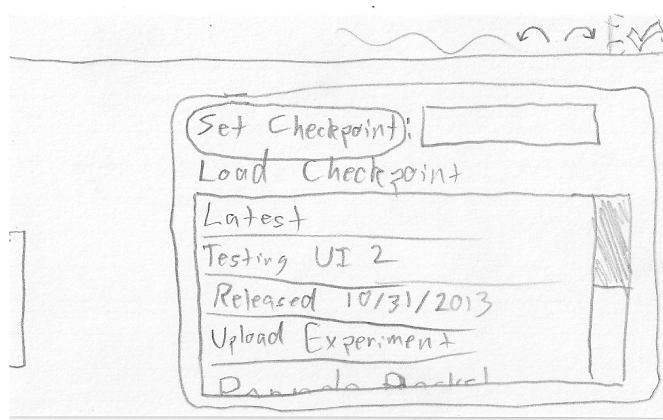 Set Checkpoint:
Load Checkpoint
Latest
Testing UI 2
Released 10/31/2013
Upload Experiment